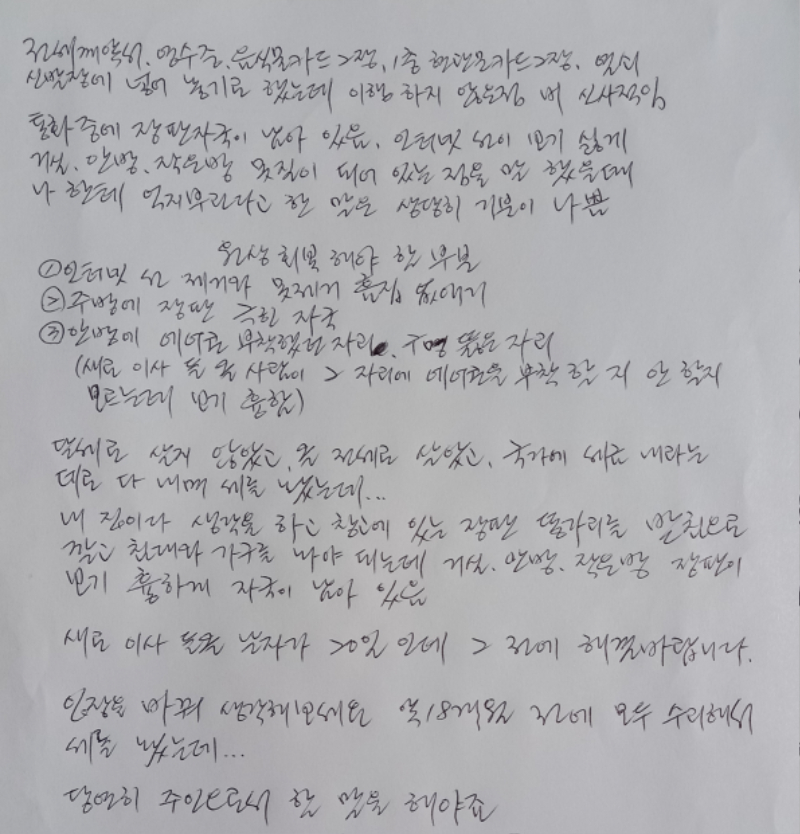 전세계약서, 영수증, 음식물카드 2장, 1층 현관문카드 2장, 열쇠
신발장에 넣어 놓기로 했는데 이행 하지 않는점 비 신사적임
통화 중에 장판자국이 남아 있음, 인터넷 선이 보기 싫게
거실, 안방, 작은방 못질이 되어 있는 점을 말 했을때
나 한테 억지부린다고 한 말은 상당히 기분이 나쁨
원상 회복 해야 할 부분
①인터넷 선 제거와 못제거 흠집 없애기
②주방에 장판 긁힌 자국
③안방에 에어콘 부착했던 자리, 구멍 뚫은 자리
(새로 이사 들 올 사람이 그 자리에 에어콘을 부착 할 지 안 할지
모르는데 보기 흉함)
월세로 살지 않았고, 올 전세로 살았고, 국가에 세금 내라는
데로 다 내며 세를 놨는데...
내 집이다 생각을 하고 창고에 있는 장판 똥가리를 받침으로
깔고 침대와 가구를 놔야 되는데 거실, 안방, 작은방 장판이
보기 흉하게 자국이 남아 있음
새로 이사 들올 날자가 20일 인데 그 전에 해결바랍니다.
입장을 바꿔 생각해보세요 약 18개월 전에 모두 수리해서
세를 놨는데...
당연히 주인으로서 할 말을 해야죠